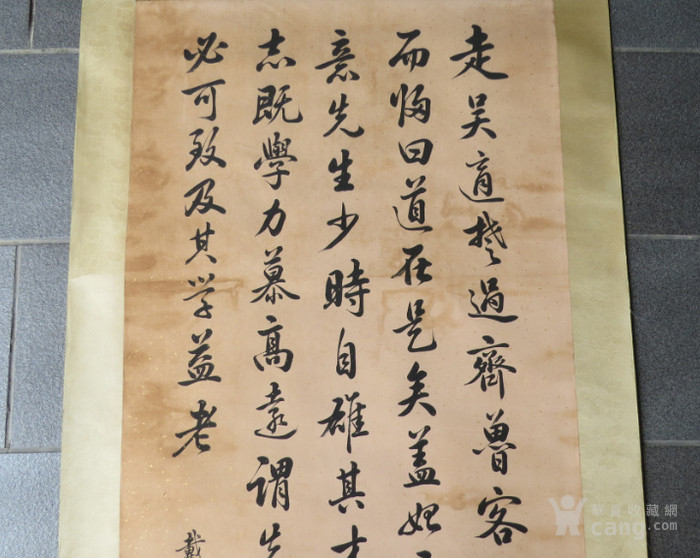 走吴適楚過齊魯客
而悔曰道在是矣盖始
意先生少時自雄其才
志既學力慕高遠謂先
必可致及其学益老
戴
華夏收藏網
cang.com